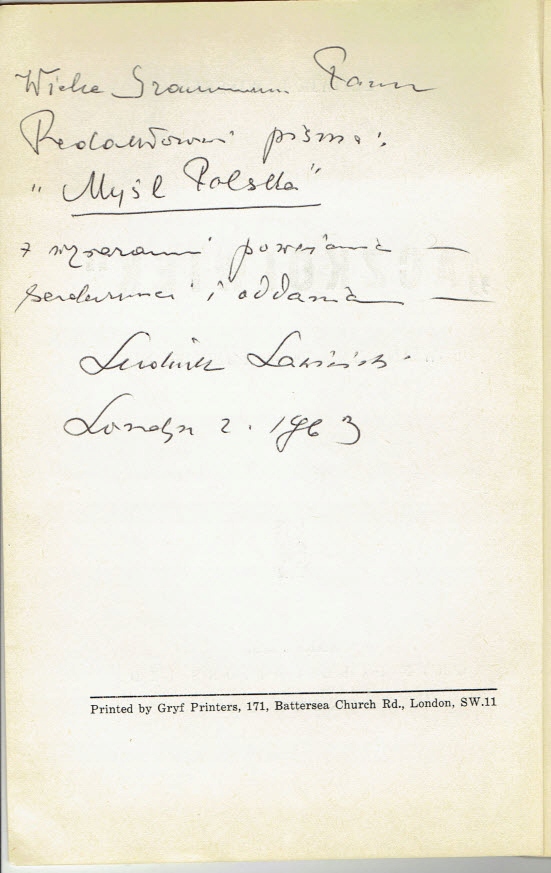 Wielce Szanownemu Panu
Redaktorowi pisma:
"Myśl Polska"
z wyrazami poważania —
serdeczności i oddania —
Ludwik Lawiński.
Londyn 2. 1963
Printed by Gryf Printers, 171, Battersea Church Rd., London, SW.11